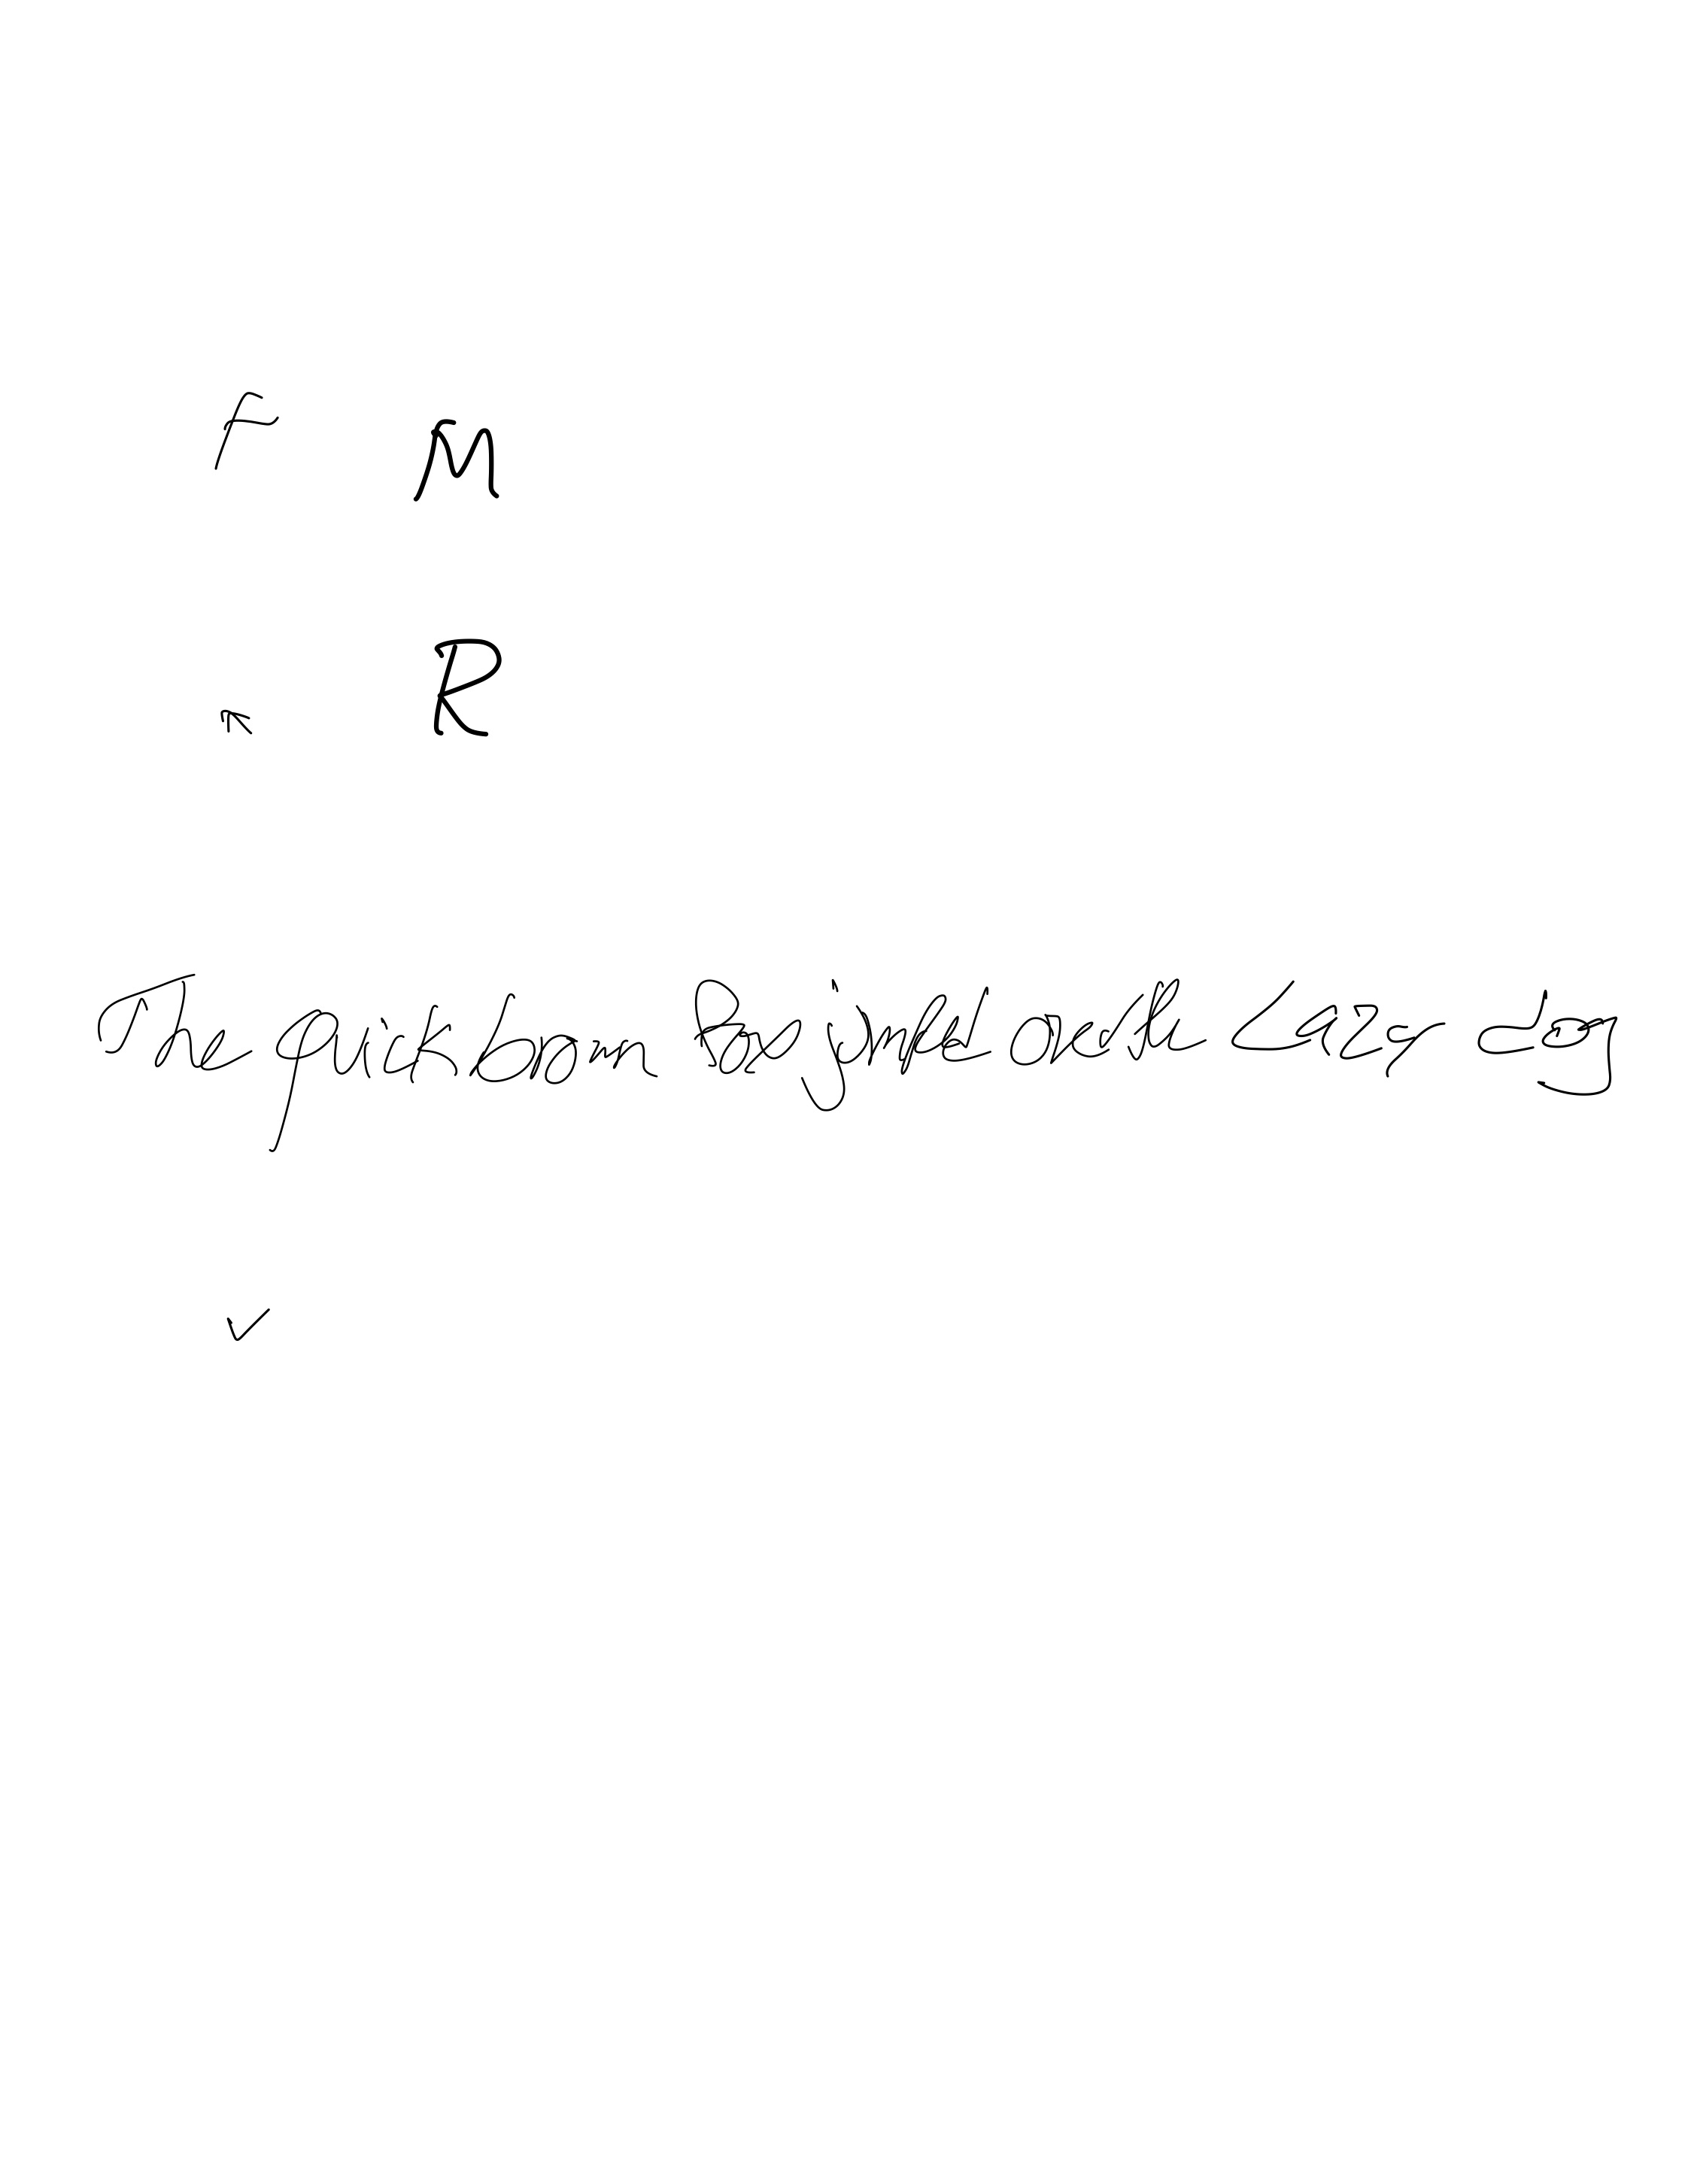 F M
R
The quick brown Fox jumped over the Lazy dog